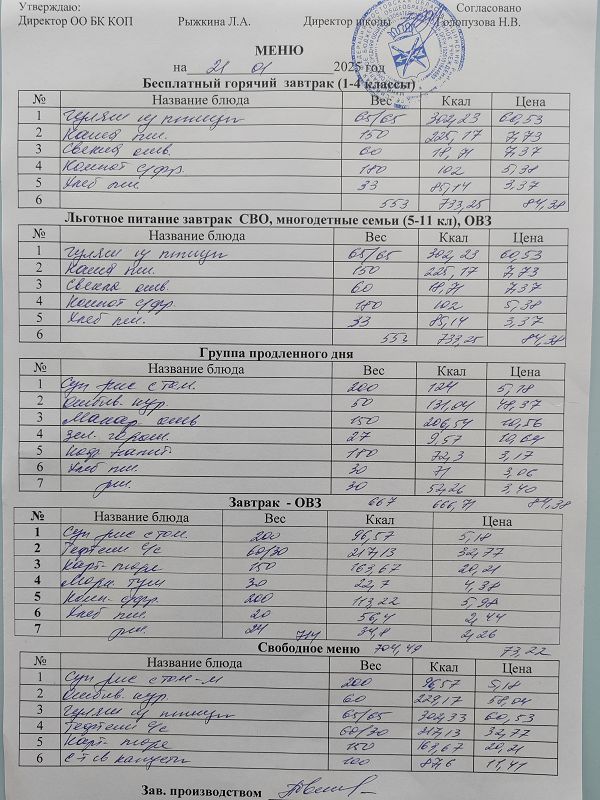 Утверждаю: Согласовано
Директор ОО БК КОП Рыжкина Л.А. Директор школы Голопузова Н.В.
МЕНЮ
на 21 01 2025 год
Бесплатный горячий завтрак (1-4 классы)
№ Название блюда Вес Ккал Цена
1 Гуляш из птицы 65/65 302,23 60,53
2 Каша пш. 150 225,17 7,73
3 Свекла отв. 60 18,71 7,37
4 Компот с/фр. 180 102 5,38
5 Хлеб пш. 33 85,14 3,37
6 553 733,25 84,38
Льготное питание завтрак СВО, многодетные семьи (5-11 кл), ОВЗ
№ Название блюда Вес Ккал Цена
1 Гуляш из птицы 65/65 302,23 60,53
2 Каша пш. 150 225,17 7,73
3 Свекла отв. 60 18,71 7,37
4 Компот с/фр. 180 102 5,38
5 Хлеб пш. 33 85,14 3,37
6 553 733,25 84,38
Группа продленного дня
№ Название блюда Вес Ккал Цена
1 Суп рис с том. 200 124 5,18
2 Отбив. кур. 50 131,04 48,37
3 Макар. отв 150 206,54 10,56
4 Зел. горош. 27 9,57 10,64
5 Коф. напит. 180 72,3 3,17
6 Хлеб пш. 30 71 3,06
7 рж. 30 52,26 3,40
Завтрак - ОВЗ 667 666,71 84,38
№ Название блюда Вес Ккал Цена
1 Суп рис с том. 200 96,57 5,18
2 Тефтели б/с 60/30 217,13 32,77
3 Карт. пюре 150 163,67 20,21
4 Морк. туш 30 22,7 4,38
5 Комп. с/фр. 200 113,22 5,98
6 Хлеб пш. 20 56,4 2,44
7 рж. 24 714 34,8 2,26
Свободное меню 704,49 73,22
№ Название блюда Вес Ккал Цена
1 Суп рис с том-м 200 96,57 5,18
2 Отбив. кур 60 229,17 58,04
3 Гуляш из птицы 65/65 302,33 60,53
4 Тефтели б/с 60/30 217,13 32,77
5 Карт. пюре 150 163,67 20,21
6 С-т св капусты 100 87,6 11,41
Зав. производством